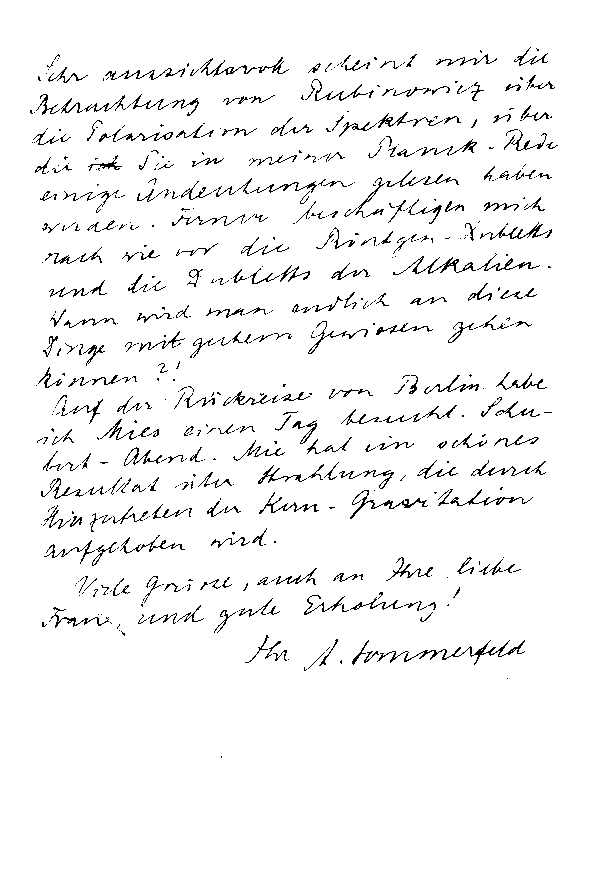 Sehr aussichtsvoll scheint mir die
Betrachtung von Rubinowicz über
die Polarisation der Spektren, über
die ich Sie in meiner Planck-Rede
einige Andeutungen gelesen haben
werden. Ferner beschäftigen mich
nach wie vor die Röntgen-Dubletts
und die Dubletts der Alkalien.
Wann wird man endlich an diese
Dinge mit gutem Gewissen gehen
können?!
Auf der Rückreise von Berlin habe
ich Mies einen Tag besucht. Schu-
bert-Abend. Mie hat ein schönes
Resultat über Strahlung, die durch
Hinzutreten der Kern-Gravitation
aufgehoben wird.
Viele Grüsse, auch an Ihre liebe
Frau, und gute Erholung!
Ihr A. Sommerfeld